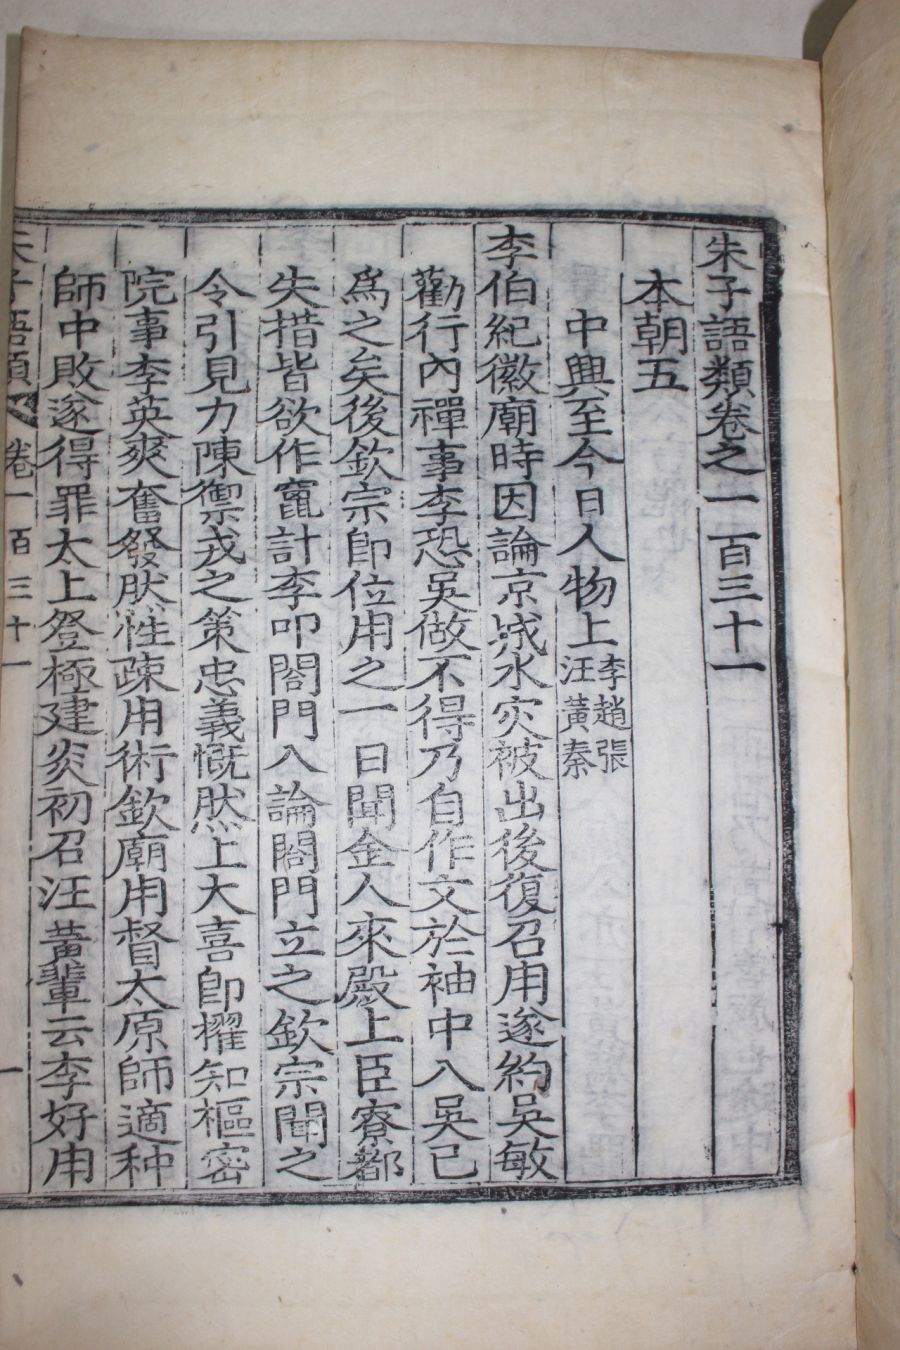 朱子語類卷之一百三十一
本朝五
中興至今日人物上 李趙張
汪黃秦
李伯紀徽廟時因論京城水灾被出後復召用遂約吳敏
勸行內禪事李恐吳做不得乃自作文於袖中入吳已
爲之矣後欽宗卽位用之一日聞金人來殿上臣寮都
失措皆欲作竄計李叩閤門入論閤門立之欽宗聞之
令引見力陳禦戎之策忠義慨然上大喜卽擢知樞密
院事李英爽奮發然性疎用術欽廟用督太原師適种
師中敗遂得罪太上登極建炎初召汪黃輩云李好用
朱子語類 卷一百三十一 一